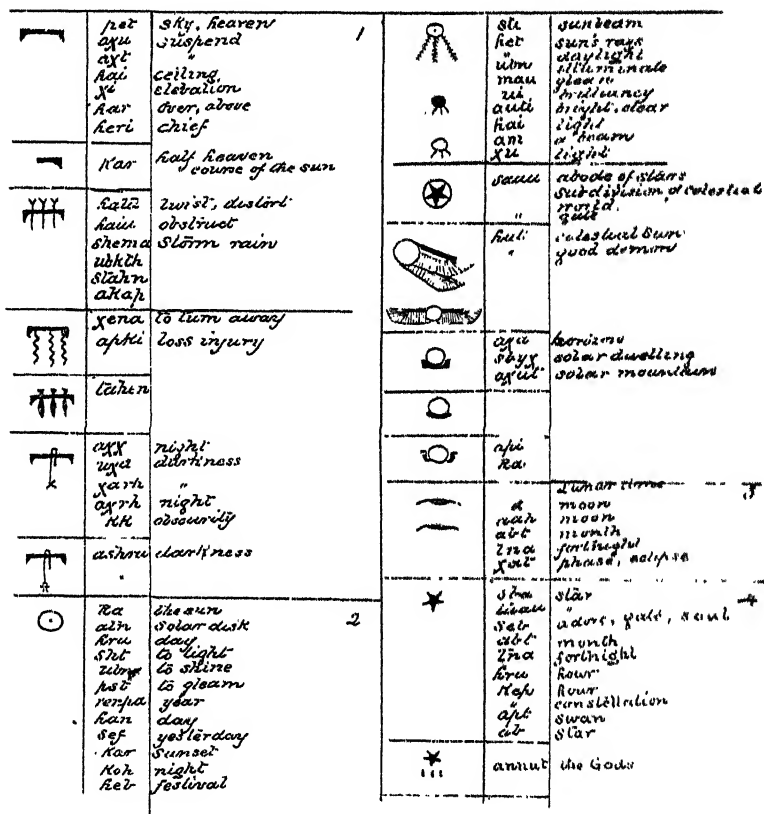 pet sky, heaven 1
axu suspend
axt "
hai ceiling,
xi elevation
har over, above
heri chief
Kar half heaven
course of the sun
twist, distort
haiu obstruct
shema storm rain
stahn
akap
xena to turn away
apki loss injury
tahen
axx night
uxa darkness
xarh "
axrh night
KK obscurity
ashru darkness
"
Ra the sun 2
atn solar disk
hru day
sht to light
ubn to shine
pst to gleam
renpa year
han day
sef yesterday
Kar sunset
Koh night
heb festival
sti sunbeam
het sun's rays
ubn daylight
mau illuminate
gleam
ui brilliancy
auti bright, clear
hai light
am a beam
xu light
abode of stars
subdivision of celestial
world.
" gate
huti celestial sun
" good demon
axa horizon
solar dwelling
axut solar mountain
api
Ra
Lunar time 3
a moon
aah moon
abt month
fortnight
phase, eclipse
sba star 4
"
Seb adore, gate, soul
abt month
fortnight
hru hour
Kep hour
" constellation
apt swan
ab star
annut the Gods